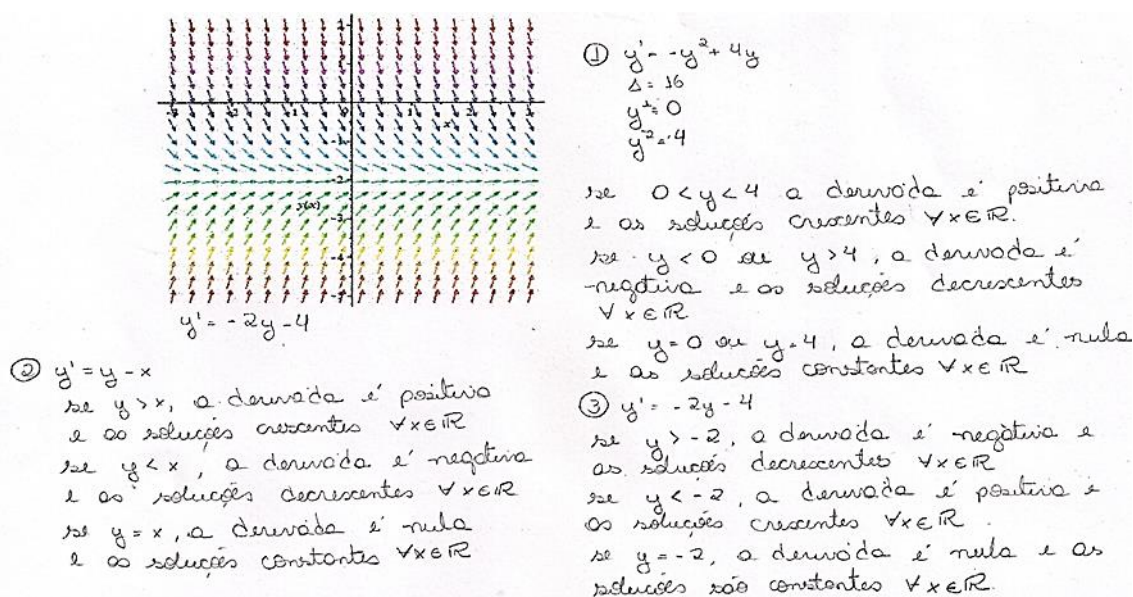 y' = -2y - 4
① y' = -y² + 4y
Δ = 16
y¹ = 0
y² = 4
se 0 < y < 4 a derivada é positiva
e as soluções crescentes ∀x∈ℝ.
se y < 0 ou y > 4, a derivada é
negativa e as soluções decrescentes
∀x∈ℝ
se y = 0 ou y = 4, a derivada é nula
e as soluções constantes ∀x∈ℝ
② y' = y - x
se y > x, a derivada é positiva
e as soluções crescentes ∀x∈ℝ
se y < x, a derivada é negativa
e as soluções decrescentes ∀x∈ℝ
se y = x, a derivada é nula
e as soluções constantes ∀x∈ℝ
③ y' = -2y - 4
se y > -2, a derivada é negativa e
as soluções decrescentes ∀x∈ℝ
se y < -2, a derivada é positiva e
as soluções crescentes ∀x∈ℝ.
se y = -2, a derivada é nula e as
soluções são constantes ∀x∈ℝ.